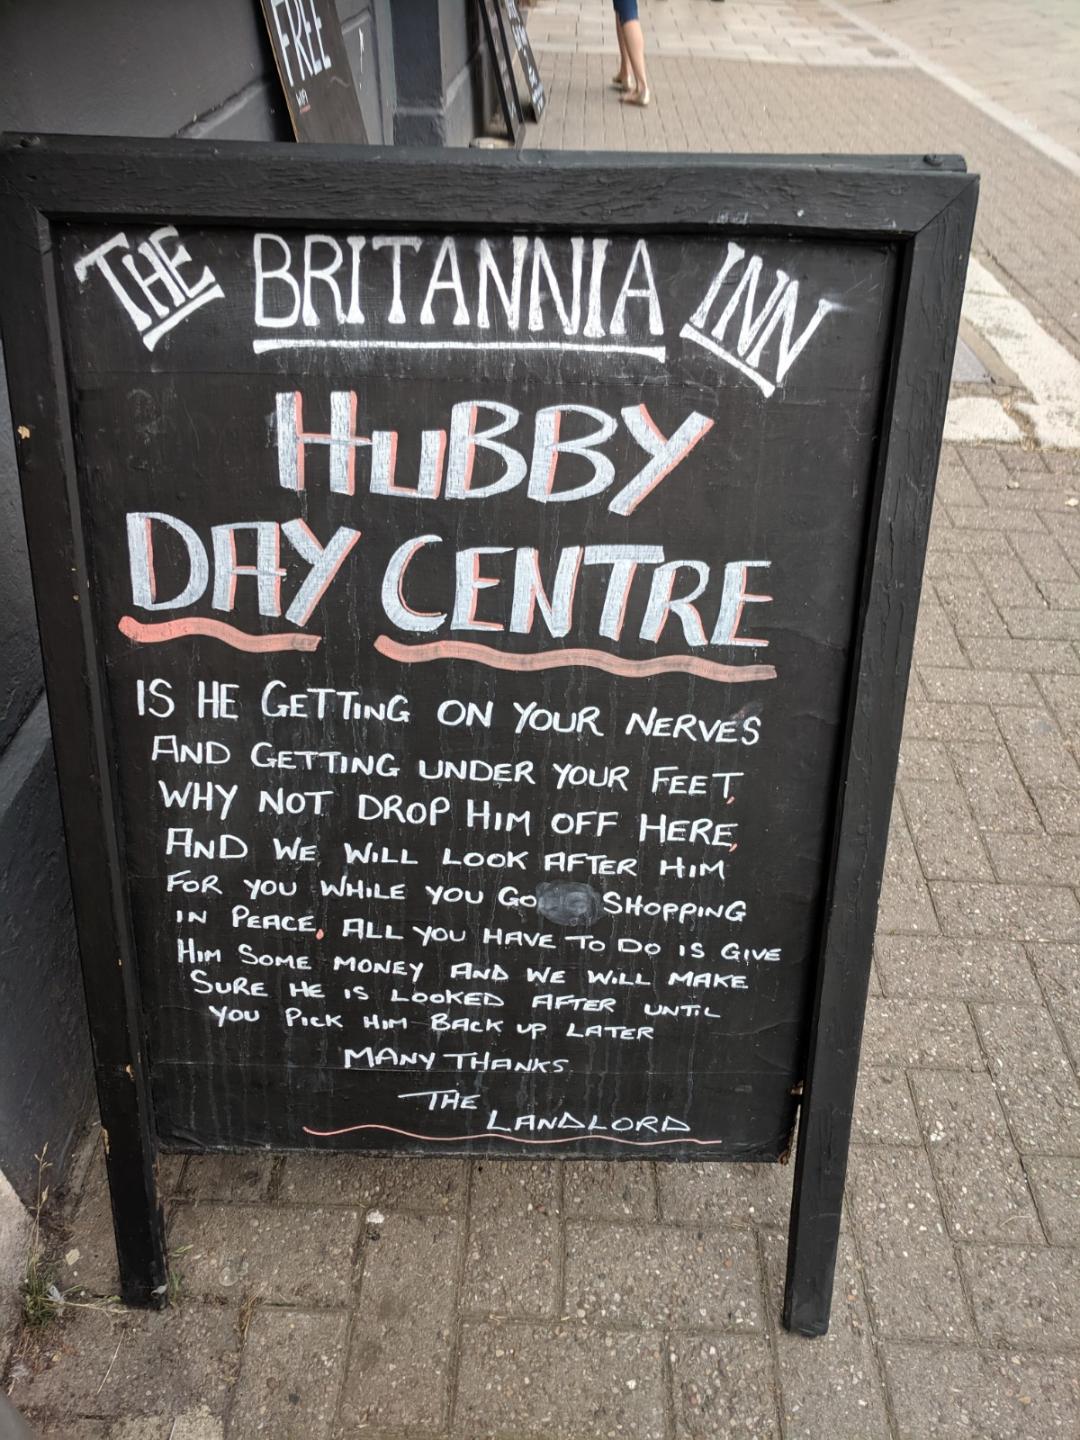 FREE
WIFI
THE BRITANNIA INN
HUBBY
DAY CENTRE
IS HE GETTING ON YOUR NERVES
AND GETTING UNDER YOUR FEET,
WHY NOT DROP HIM OFF HERE,
AND WE WILL LOOK AFTER HIM
FOR YOU WHILE YOU GO SHOPPING
IN PEACE, ALL YOU HAVE TO DO IS GIVE
HIM SOME MONEY AND WE WILL MAKE
SURE HE IS LOOKED AFTER UNTIL
YOU PICK HIM BACK UP LATER
MANY THANKS
THE
LANDLORD